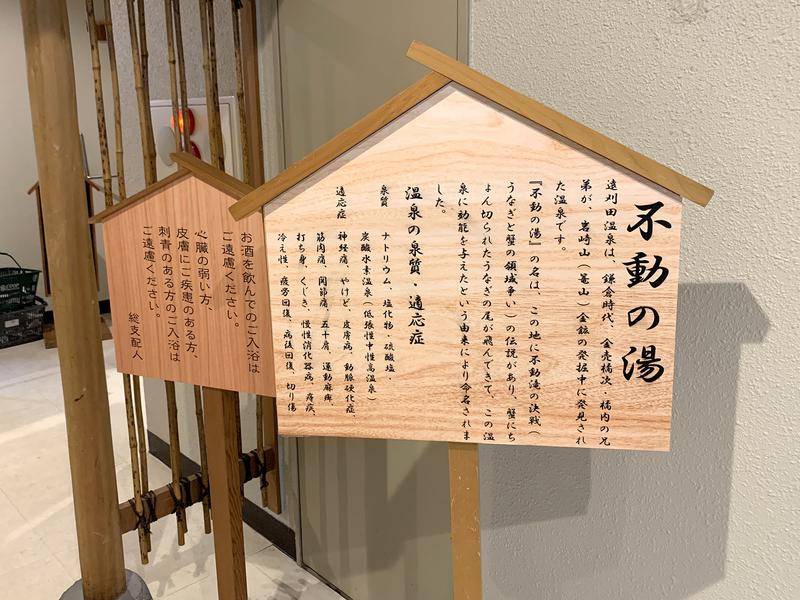 不動の湯
遠刈田温泉は、鎌倉時代、金売橘次・橘内の兄
弟が、岩崎山（篭山）金鉱の発掘中に発見され
た温泉です。
『不動の湯』の名は、この地に不動滝の決戦（
うなぎと蟹の領域争い）の伝説があり、蟹にち
ょん切られたうなぎの尾が飛んできて、この温
泉に効能を与えたという由来により命名されま
した。
温泉の泉質・適応症
泉質　ナトリウム、塩化物・硫酸塩・
炭酸水素温泉（低張性中性高温泉）
適応症　神経痛、やけど、皮膚病、動脈硬化症、
筋肉痛、関節痛、五十肩、運動麻痺、
打ち身、くじき、慢性消化器病、痔疾、
冷え性、疲労回復、病後回復、切り傷
お酒を飲んでのご入浴は
ご遠慮ください。
心臓の弱い方、
皮膚にご疾患のある方、
刺青のある方のご入浴は
ご遠慮ください。
総支配人